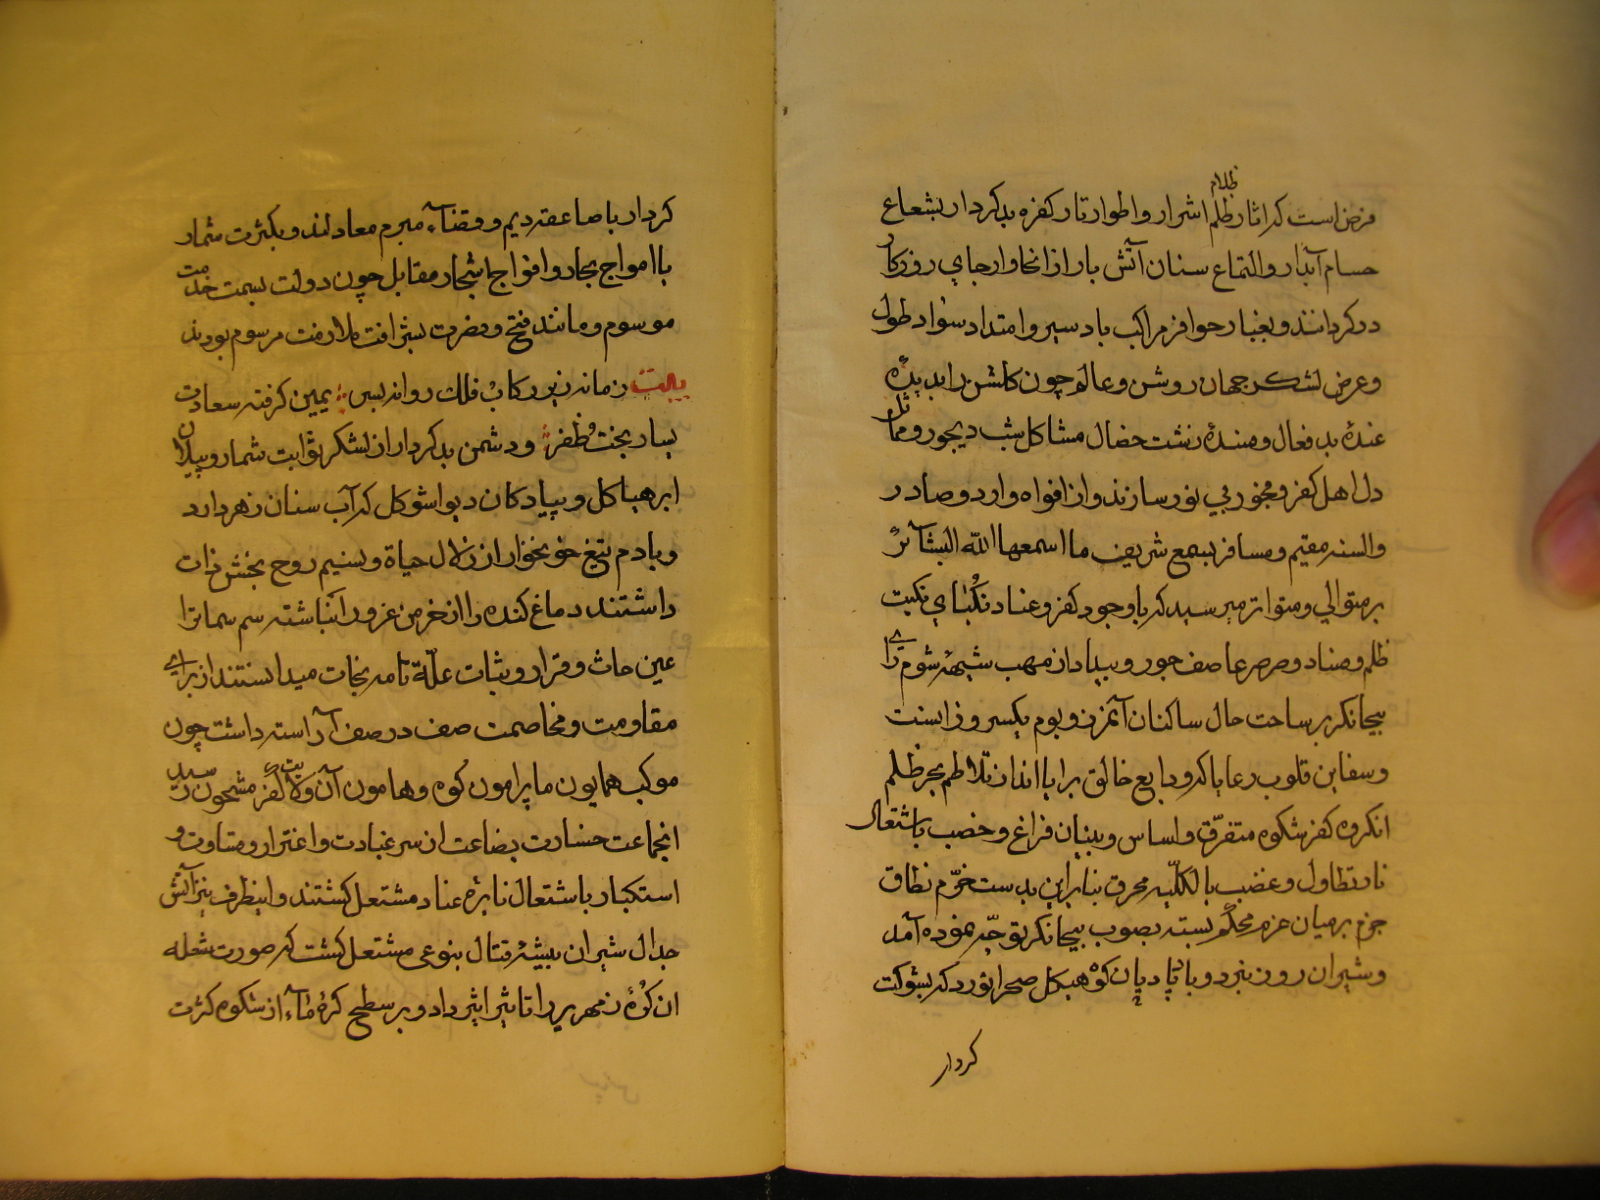 ظلام
فرض است که اثار ظلم اشرار و اطوار تار کفره بدکردار بشعاع
حسام آبدار و التماع سنان آتش بار از انحا و ارجای روزکار
درکردانند و بغبار حوافر مراکب باد سیر و امتداد سواد طول
و عرض لشکر جهان روشن و عالم چون کلشن را بدیدهٔ
عندهٔ بد فعال و زشت خصال مشاکل شب دیجور و مماثل
دل اهل کفر و فجور بی نور سازند و از افواه وارد و صادر
و السنه مقیم و مسافر بسمع شریف ما اسمعها الله البشآئر
بر متوالی و متواتر میرسید که با وجود کفر و عناد نکبای نکبت
ظلم و فساد و صرصر عاصف جور و بیداد از مهب شیمهٔ شوم رای
بیجانکر بر ساحت حال ساکنان آنمرز و بوم یکسر وزانست
و سفاین قلوب رعایا که ودایع خالق برایا اند از تلاطم بحر ظلم
انکروه کفر شکوه متفرّق و اساس و بنیان فراغ و خصب باشتعال
نار تطاول و غضب بالکلّیه محرق بنابراین بدست حزم نطاق
جزم بر میان عزم محکم بسته بصوب بیجانکر توجّه نموده آمد
و شیران روز نبرد و باد پایان کوه هیکل صحرا نورد که بشوکت
کردار
کردار با صاعقه دیم و قضآء مبرم معادلند و بکثرت شمار
با امواج بحار و افواج اشجار مقابل چون دولت بسمت خدمت
موسوم و مانند فتح و نصرت بشرافت ملازمت مرسوم بودند
بیت زمانه زیر رکاب فلک روانه بپس یمین کرفته سعادت
یسار بخت و ظفر و دشمن بدکردار از لشکر ثوابت شمار و پیلان
ابر هیاکل و پیادکان دیو اشوکل که آب سنان زهر دارد
و یا دم تیغ خونخوار از زلال حیاة و تسنیم روح بخش ذات
داشتند دماغ کنده را از خرمن غرور انباشته سم سمات را
عین حیات و قرار و ثبات علّة تامه نجات میدانستند از برای
مقاومت و مخاصمت صف در صف آراسته داشت چون
موکب همایون ما پیرامون کوه و هامون آن ولایت کفر مشحون رسید
انجماعت خسارت بضاعت از سر غباوت و اغترار و شقاوت و
استکبار باشتعال نایرهٔ عناد مشتعل کشتند و اینطرف نیز آتش
جدال شیران بیشهٔ قتال بنوعی مشتعل کشت که صورت شعله
ان کرهٔ زمهریر را تاثیر اثیر داد و بر سطح کرهٔ مآء از شکوه کثرت